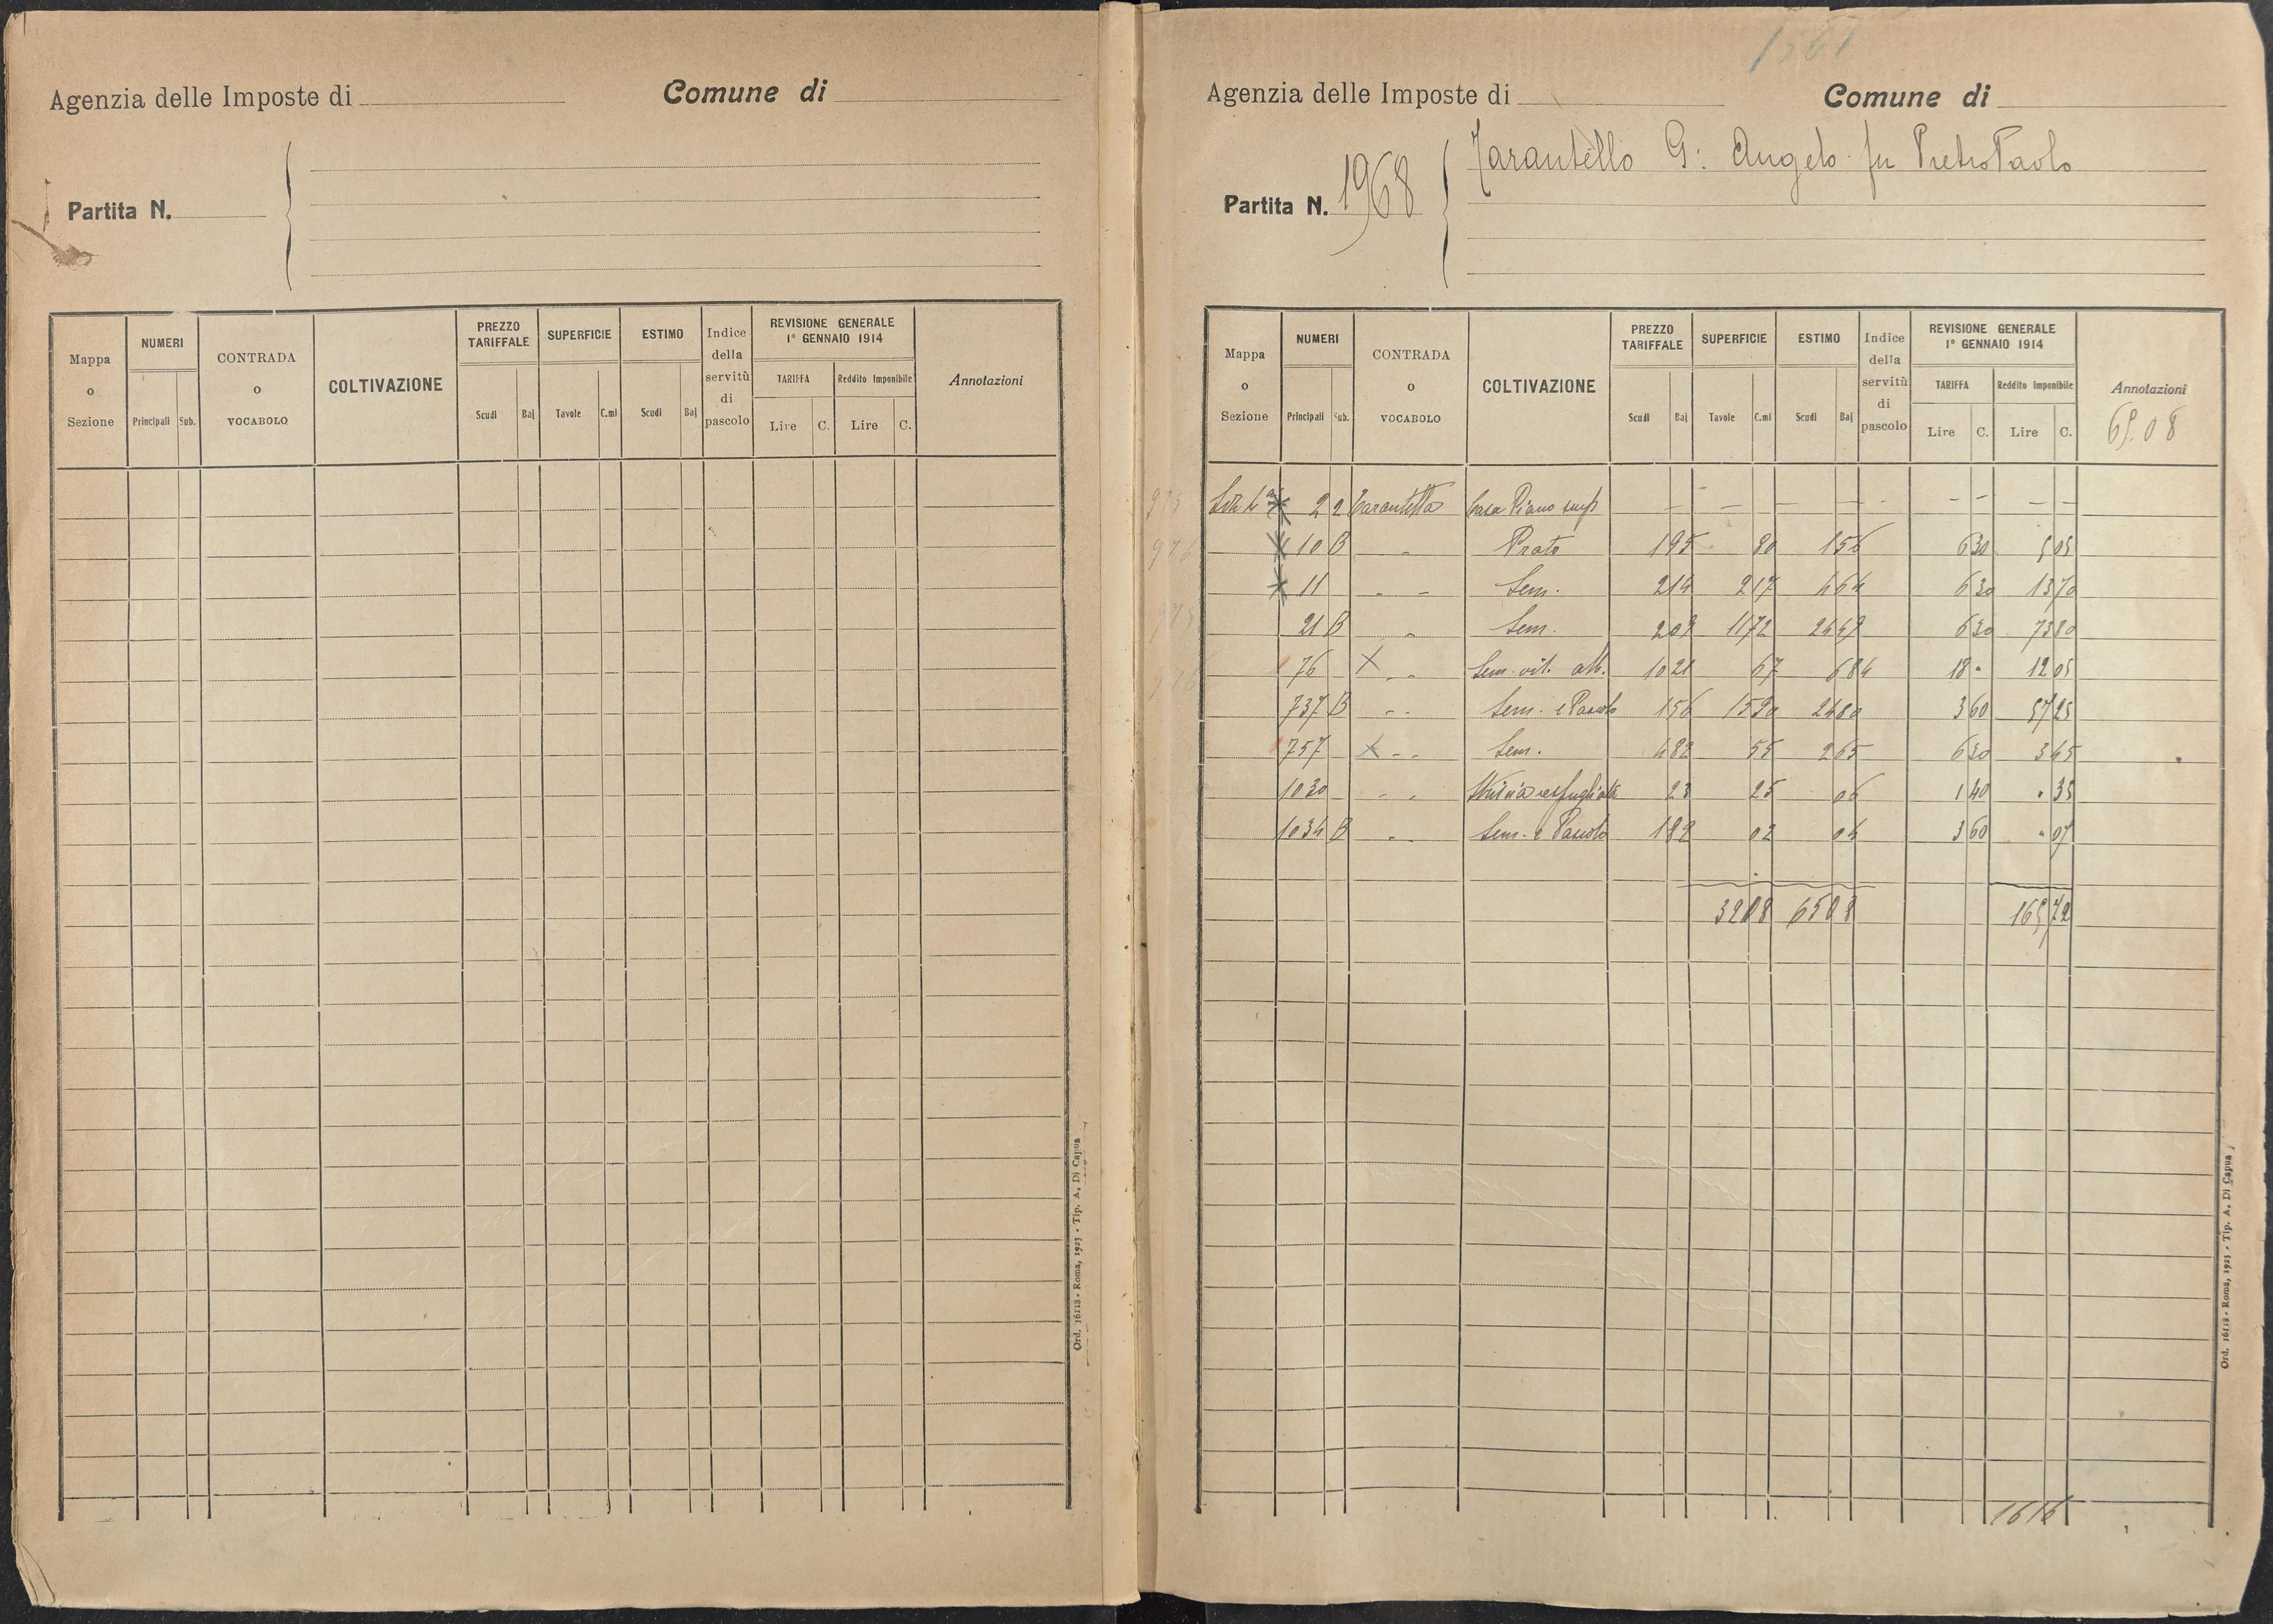 Agenzia delle Imposte di Comune di
Partita N.
Mappa o Sezione NUMERI Principali Sub. CONTRADA o VOCABOLO COLTIVAZIONE PREZZO TARIFFALE Scudi Baj SUPERFICIE Tavole C.mi ESTIMO Scudi Baj Indice della servitù di pascolo REVISIONE GENERALE 1° GENNAIO 1914 TARIFFA Lire C. Reddito Imponibile Lire C. Annotazioni
Ord. 16118 - Roma, 1923 - Tip. A. Di Capua
Agenzia delle Imposte di Comune di
Partita N. 1968 Tarantello G: Angelo fu Pietro Paolo
Mappa o Sezione NUMERI Principali Sub. CONTRADA o VOCABOLO COLTIVAZIONE PREZZO TARIFFALE Scudi Baj SUPERFICIE Tavole C.mi ESTIMO Scudi Baj Indice della servitù di pascolo REVISIONE GENERALE 1° GENNAIO 1914 TARIFFA Lire C. Reddito Imponibile Lire C. Annotazioni
65.08
2 2 Casa Piano sup — — — — — — — —
10 B Prato 1 95 80 1 56 6 30 5 05
11 Sem. 2 14 2 17 4 64 6 30 13 70
21 B Sem. 2 09 11 72 24 49 6 30 73 80
76 X Sem. vit. alb. 10 21 67 6 84 18 - 12 05
737 B Sem. e Pascolo 1 56 15 90 24 80 3 60 57 25
757 X Sem. 4 82 55 2 65 6 30 3 45
1030 23 25 06 1 40 . 35
1034 B Sem. e Pascolo 1 82 02 04 3 60 . 07
32 08 65 08 165 72
1616